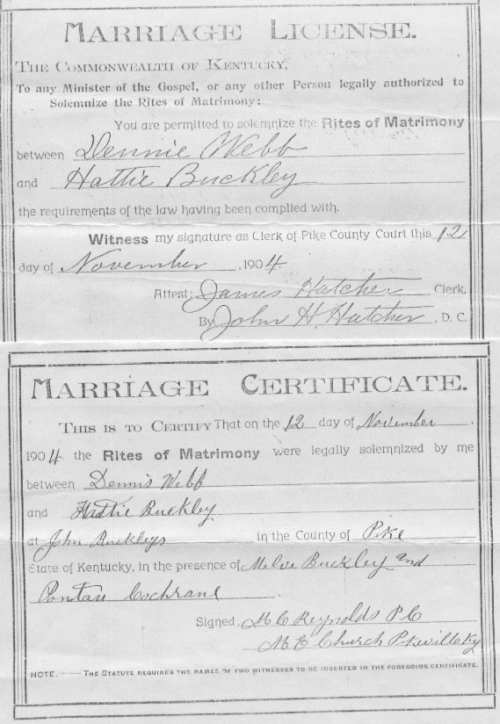 MARRIAGE LICENSE.
THE COMMONWEALTH OF KENTUCKY,
To any Minister of the Gospel, or any other Person legally authorized to
Solemnize the Rites of Matrimony:
You are permitted to solemnize the Rites of Matrimony
between Dennie Webb
and Hattie Buckley
the requirements of the law having been complied with.
Witness my signature as Clerk of Pike County Court this 12
day of November, 1904
Attest: James Hatcher Clerk,
By John H. Hatcher, D. C.
MARRIAGE CERTIFICATE.
THIS IS TO CERTIFY That on the 12 day of November
1904 the Rites of Matrimony were legally solemnized by me
between Dennis Webb
and Hattie Buckley
at John Buckleys in the County of Pike
State of Kentucky, in the presence of Buckley and
Cochrane
Signed M C Reynolds P.C
M.E Church Pikeville Ky
NOTE.—THE STATUTE REQUIRES THE NAMES OF TWO WITNESSES TO BE INSERTED IN THE FOREGOING CERTIFICATE.